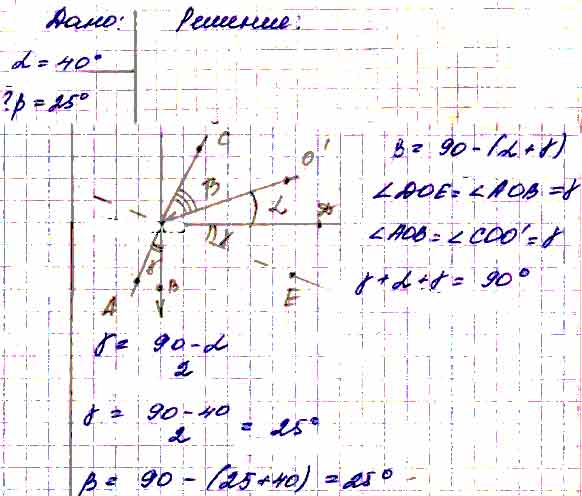 Дано: Решение:
α = 40°
? β = 25°
C
O'
β
α
D
γ
γ
A
B
E
β = 90 - (α + γ)
∠DOE = ∠AOB = γ
∠AOB = ∠COO' = γ
γ + α + γ = 90°
γ = 90 - α
2
γ = 90 - 40 = 25°
2
β = 90 - (25+40) = 25°